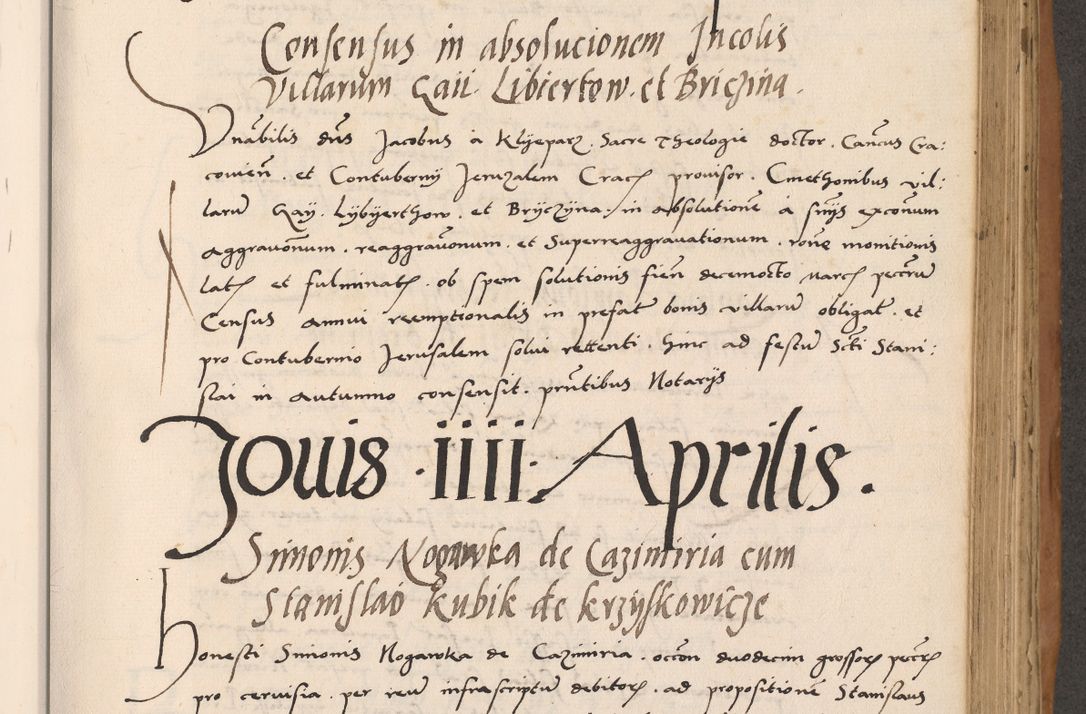 Consensus in absolucionem Incolis
villarum Gaii Libiertow et Briczina.
Vnãbilis dñs Jacobus a Klyeparz. Sacre Theologie doctor. Cañcus Cra:
covieñ. et Contubernij Jeruzalem Crac provisor. Cmethonibus vil:
larum Gay. Lybyerthow. et Bryczyna. in absolutione a snÿs exconum
aggravonum. reaggravonum. et Superreaggravationum. rone monitionis
lat et fulminat. ob spem solutionis fien decemocto marc pecrum
Census annui reemptionalis in prefat bonis villarum obligat. et
pro Contubernio Jerusalem solvi retenti. hinc ad festum Scti Stani:
slai in autumno consensit. prntibus Notarijs
Jovis ·iiii· Aprilis.
Simonis Nogawka de Cazimiria cum
Stanislao Kubik de Krzyskowicze
honesti Simonis Nogawka de Cazimiria. occon duodecim grossor pecr
pro cervisia. per reum infrascriptum debitor. ad propositione Stanislaus